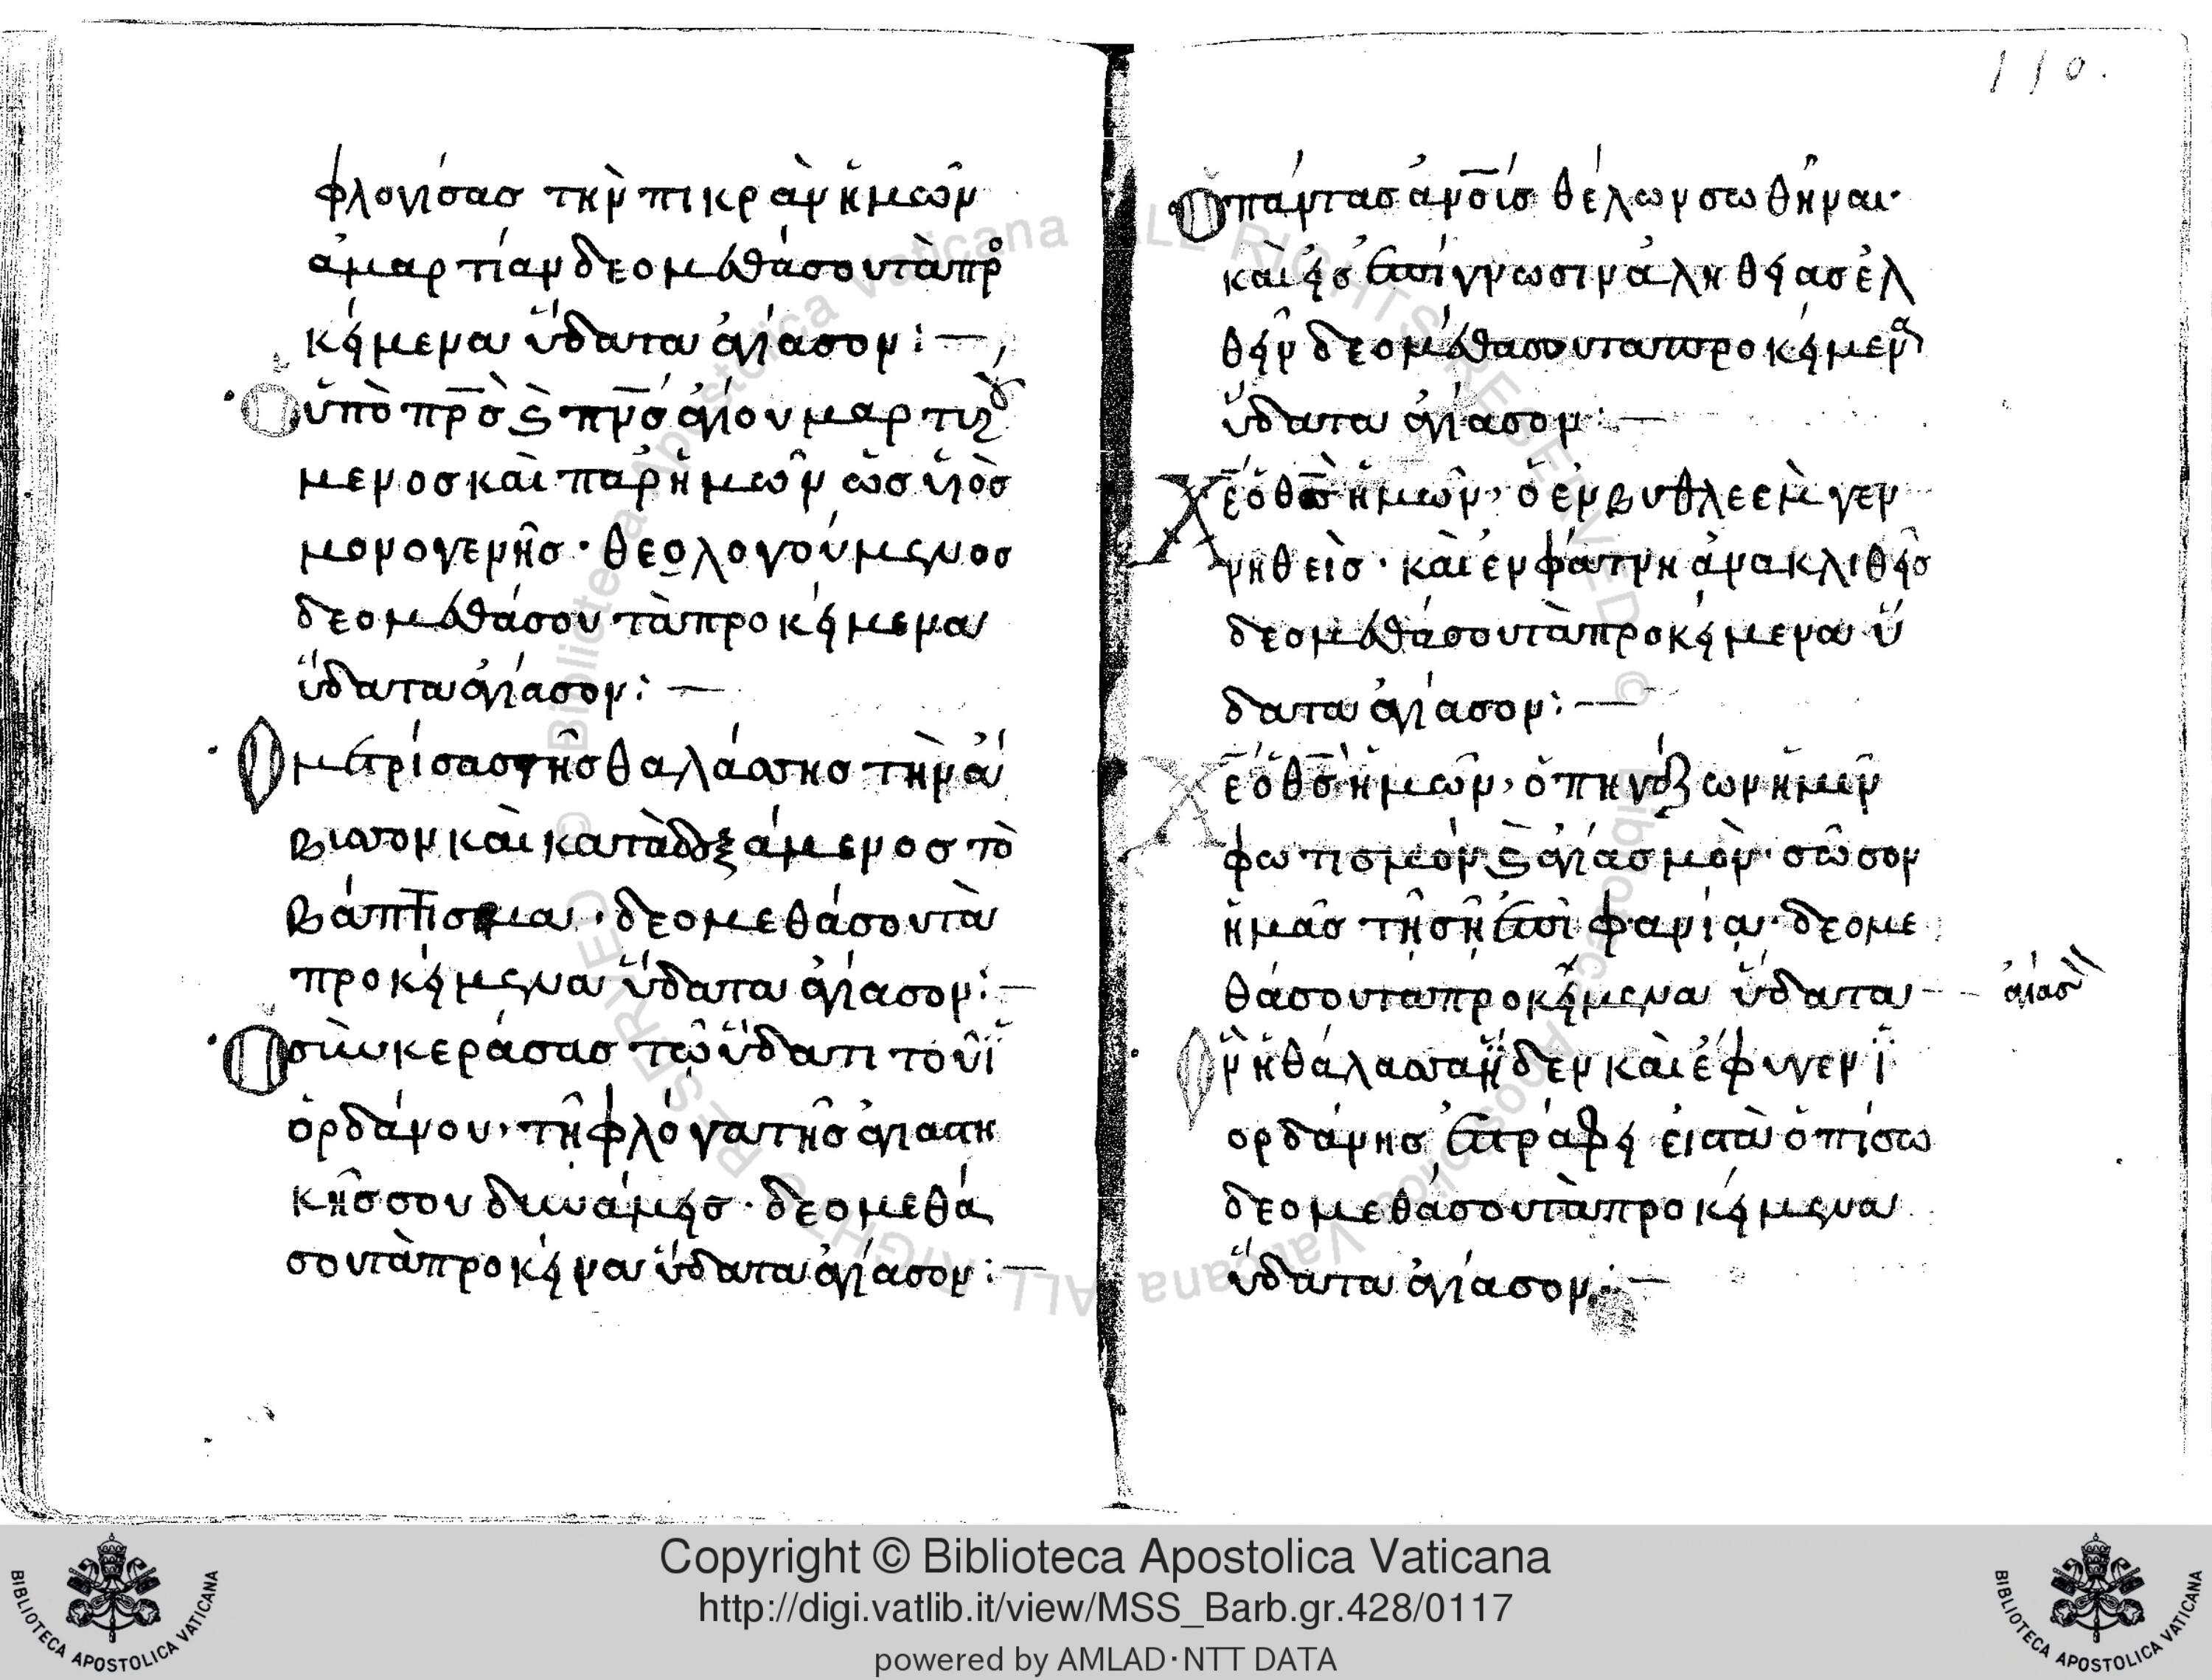 φλογίσας τὴν πικρὰν ἡμῶν
ἁμαρτίαν δεομεθά σου τὰ πρ
κείμενα ὕδατα ἁγίασον :—
Ὁ ὑπὸ πρσ ϗ πνσ ἁγίου μαρτυρου
μενος καὶ παρ' ἡμῶν ὡς υἱὸς
μονογενῆς · θεολογούμενος
δεομεθά σου τὰ προκείμενα
ὕδατα ἁγίασον : —
Ὁ μετρίσας τῆς θαλάσσης τὴν ἄ
βυσσον καὶ καταδεξάμενος τὸ
βάπτισμα · δεομεθά σου τὰ
προκείμενα ὕδατα ἁγίασον :—
Ὁ συνκεράσας τῶ ὕδατι τοῦ ϊ
ορδάνου · τῆ φλόγα τῆς ἁγιαστι
κῆς σου δυνάμεις · δεομεθά
σου τὰ προκείνα ὕδατα ἁγίασον :—
110.
Ὁ πάντας ἀνοίς θέλων σωθῆναι·
καὶ εἰς ἐπίγνωσιν ἀληθείας ἐλ
θεῖν δεομεθά σου τα προκείμεν
ὕδατα ἁγίασον :—
Χε ὁ θσ ἡμῶν, ὁ ἐν βυθλεὲμ γεν
νηθεὶς · καὶ ἐν φάτνη ἀνακλιθεὶς
δεομεθά σου τὰ προκείμενα ὕ
δατα ἁγίασον :—
Χε ὁ θσ ἡμῶν, ὁ πηγάζων ἡμῖν
φωτισμόν ϗ ἁγιασμὸν · σῶσον
ἡμᾶς τῆ σῆ ἐπιφανία · δεομε
θά σου τὰ προκείμενα ὕδατα -- ἁγίασ
Ὃν ἡ θάλασσα ἤδεν καὶ ἔφυγεν ϊ
ορδάνης ἐστράφη εἰς τὰ ὀπίσω
δεομεθά σου τὰ προκείμενα
ὕδατα ἁγίασον :—
Copyright © Biblioteca Apostolica Vaticana
http://digi.vatlib.it/view/MSS_Barb.gr.428/0117
powered by AMLAD·NTT DATA
BIBLIOTECA APOSTOLICA VATICANA
BIBLIOTECA APOSTOLICA VATICANA